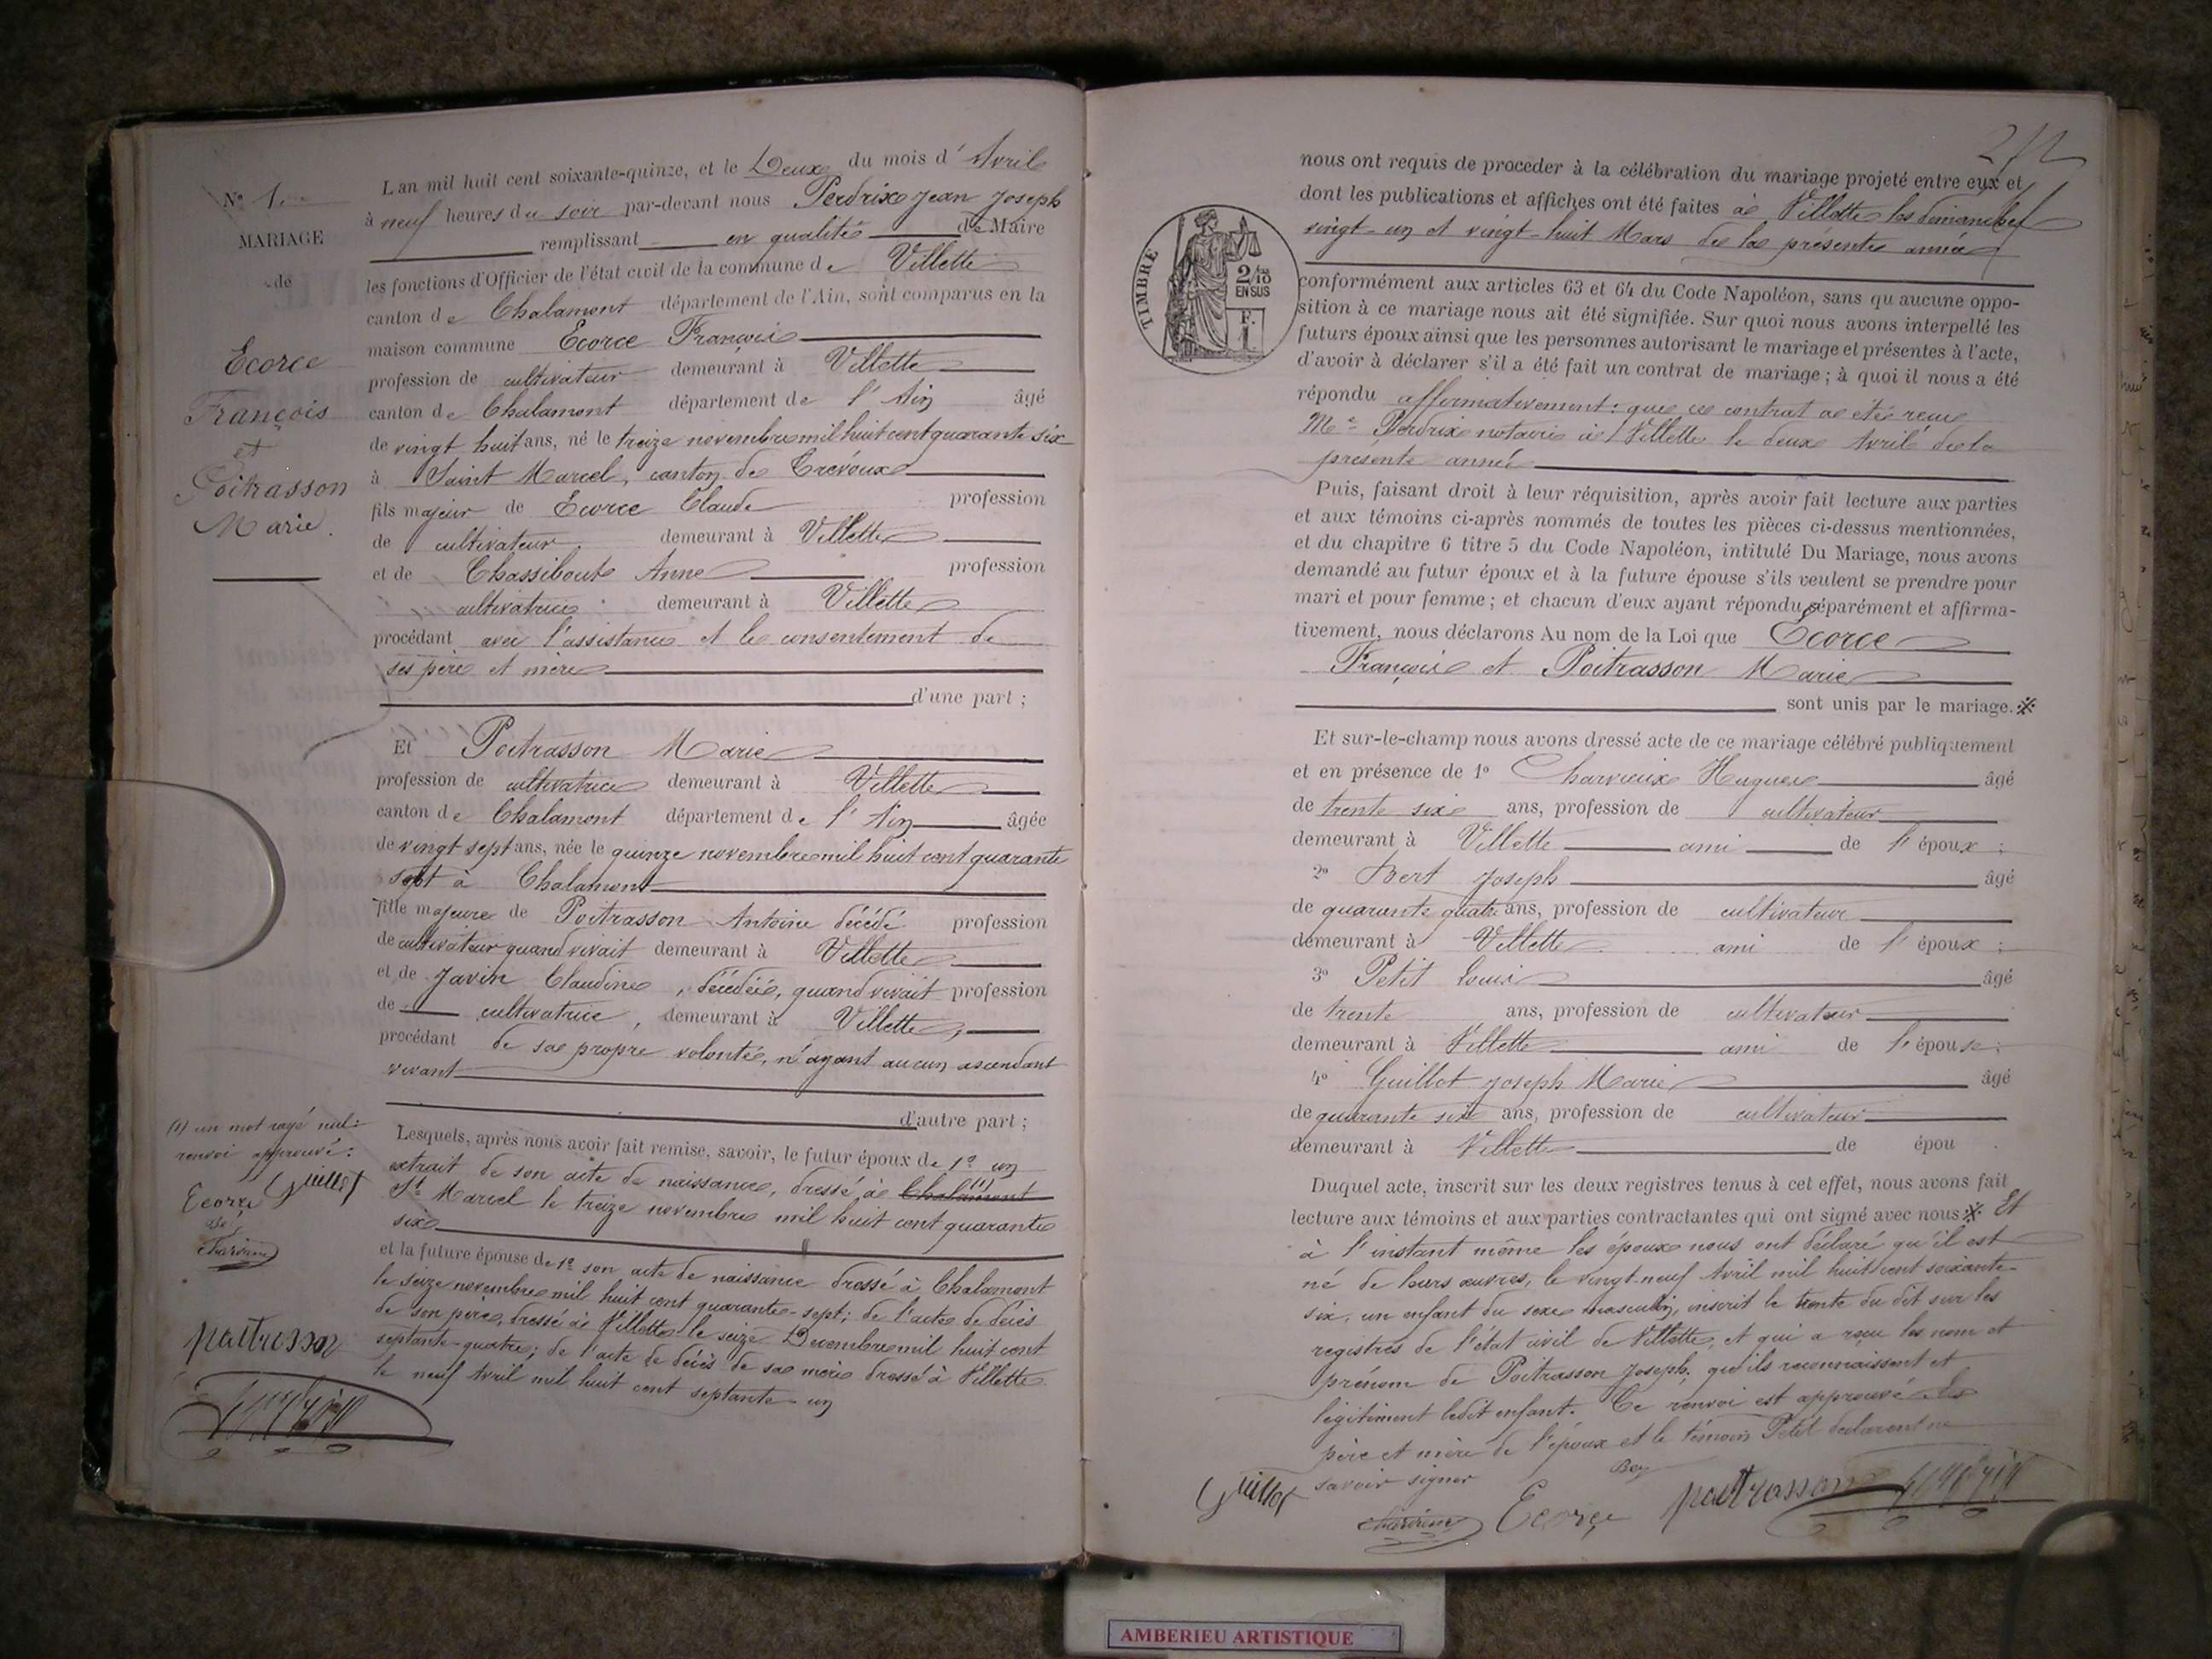 N° 1.
MARIAGE
de
Ecorce
François
et
Poitrasson
Marie.
L'an mil huit cent soixante-quinze, et le Deux du mois d'Avril
à neuf heures du soir par-devant nous Perdrix Jean Joseph
remplissant en qualité de Maire
les fonctions d'Officier de l'état civil de la commune de Villette
canton de Chalamont département de l'Ain, sont comparus en la
maison commune Ecorce François
profession de cultivateur demeurant à Villette
canton de Chalamont département de l'Ain âgé
de vingt huit ans, né le treize novembre mil huit cent quarante six
à Saint Marcel, canton de Trévoux
fils majeur de Ecorce Claude profession
de cultivateur demeurant à Villette
et de Chassibout Anne profession
cultivatrice demeurant à Villette
procédant avec l'assistance et le consentement de
ses père et mère
d'une part ;
Et Poitrasson Marie
profession de cultivatrice demeurant à Villette
canton de Chalamont département de l'Ain âgée
de vingt sept ans, née le quinze novembre mil huit cent quarante
sept à Chalamont
fille majeure de Poitrasson Antoine décédé profession
de cultivateur quand vivait demeurant à Villette
et de Javin Claudine, décédée, quand vivait profession
de cultivatrice, demeurant à Villette,
procédant de sa propre volonté, n'ayant aucun ascendant
vivant
d'autre part ;
Lesquels, après nous avoir fait remise, savoir, le futur époux de 1° un
extrait de son acte de naissance, dressé à Chalamont (1)
St Marcel le treize novembre mil huit cent quarante
six
et la future épouse de 1° son acte de naissance dressé à Chalamont
le seize novembre mil huit cent quarante-sept; de l'acte de décès
de son père, dressé à Villette le seize Decembre mil huit cent
septante-quatre; de l'acte de décès de sa mère dressé à Villette
le neuf Avril mil huit cent septante-un
(1) un mot rayé nul:
renvoi approuvé:
Ecorce Guillot
Charvieux
poitrasson
nous ont requis de procéder à la célébration du mariage projeté entre eux et
dont les publications et affiches ont été faites à Villette les dimanches
vingt-un et vingt-huit Mars de la présente année
TIMBRE
2/10
EN SUS
F.
1
conformément aux articles 63 et 64 du Code Napoléon, sans qu'aucune oppo-
sition à ce mariage nous ait été signifiée. Sur quoi nous avons interpellé les
futurs époux ainsi que les personnes autorisant le mariage et présentes à l'acte,
d'avoir à déclarer s'il a été fait un contrat de mariage ; à quoi il nous a été
répondu affirmativement: que ce contrat a été reçu
Me Perdrix notaire à Villette le deux Avril de la
présente année
Puis, faisant droit à leur réquisition, après avoir fait lecture aux parties
et aux témoins ci-après nommés de toutes les pièces ci-dessus mentionnées,
et du chapitre 6 titre 5 du Code Napoléon, intitulé Du Mariage, nous avons
demandé au futur époux et à la future épouse s'ils veulent se prendre pour
mari et pour femme ; et chacun d'eux ayant répondu séparément et affirma-
tivement, nous déclarons Au nom de la Loi que Ecorce
François et Poitrasson Marie
sont unis par le mariage. ※
Et sur-le-champ nous avons dressé acte de ce mariage célébré publiquement
et en présence de 1° Charvieux Hugues âgé
de trente six ans, profession de cultivateur
demeurant à Villette ami de l'époux ;
2° Bert Joseph âgé
de quarante quatre ans, profession de cultivateur
demeurant à Villette ami de l'époux ;
3° Petit Louis âgé
de trente ans, profession de cultivateur
demeurant à Villette ami de l'épouse ;
4° Guillot Joseph Marie âgé
de quarante six ans, profession de cultivateur
demeurant à Villette de épou
Duquel acte, inscrit sur les deux registres tenus à cet effet, nous avons fait
lecture aux témoins et aux parties contractantes qui ont signé avec nous ※ Et
à l'instant même les époux nous ont déclaré qu'il est
né de leurs œuvres, le vingt-neuf Avril mil huit cent soixante-
six, un enfant du sexe masculin, inscrit le trente du dit sur les
registres de l'état civil de Villette, et qui a reçu les nom et
prénom de Poitrasson Joseph, qu'ils reconnaissent et
légitiment ledit enfant. Ce renvoi est approuvé les
père et mère de l'époux et le témoin Petit déclarent ne
savoir signer
Guillot Charvieux Ecorce poitrasson
AMBERIEU ARTISTIQUE